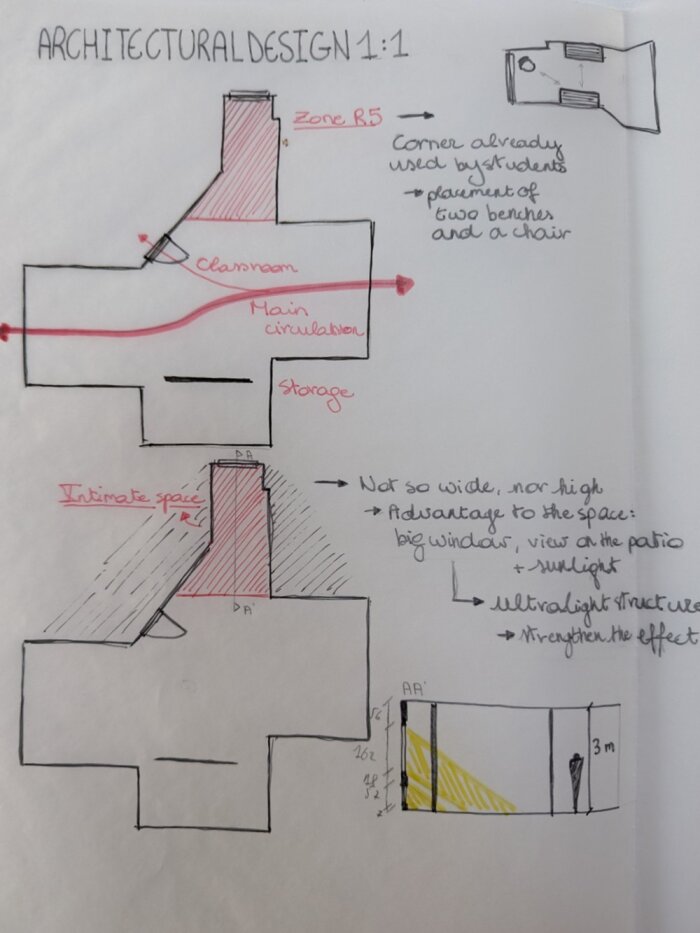 ARCHITECTURAL DESIGN 1:1
Zone R5 →
Corner already
used by students
→ placement of
two benches
and a chair
Classroom
Main
circulation
Storage
A
Intimate space
A'
→ Not so wide, nor high
→ Advantage to the space:
big window, view on the patio
+ sunlight
→ Ultralight structure
→ strengthen the effect
AA'
162
18
52
2
3m